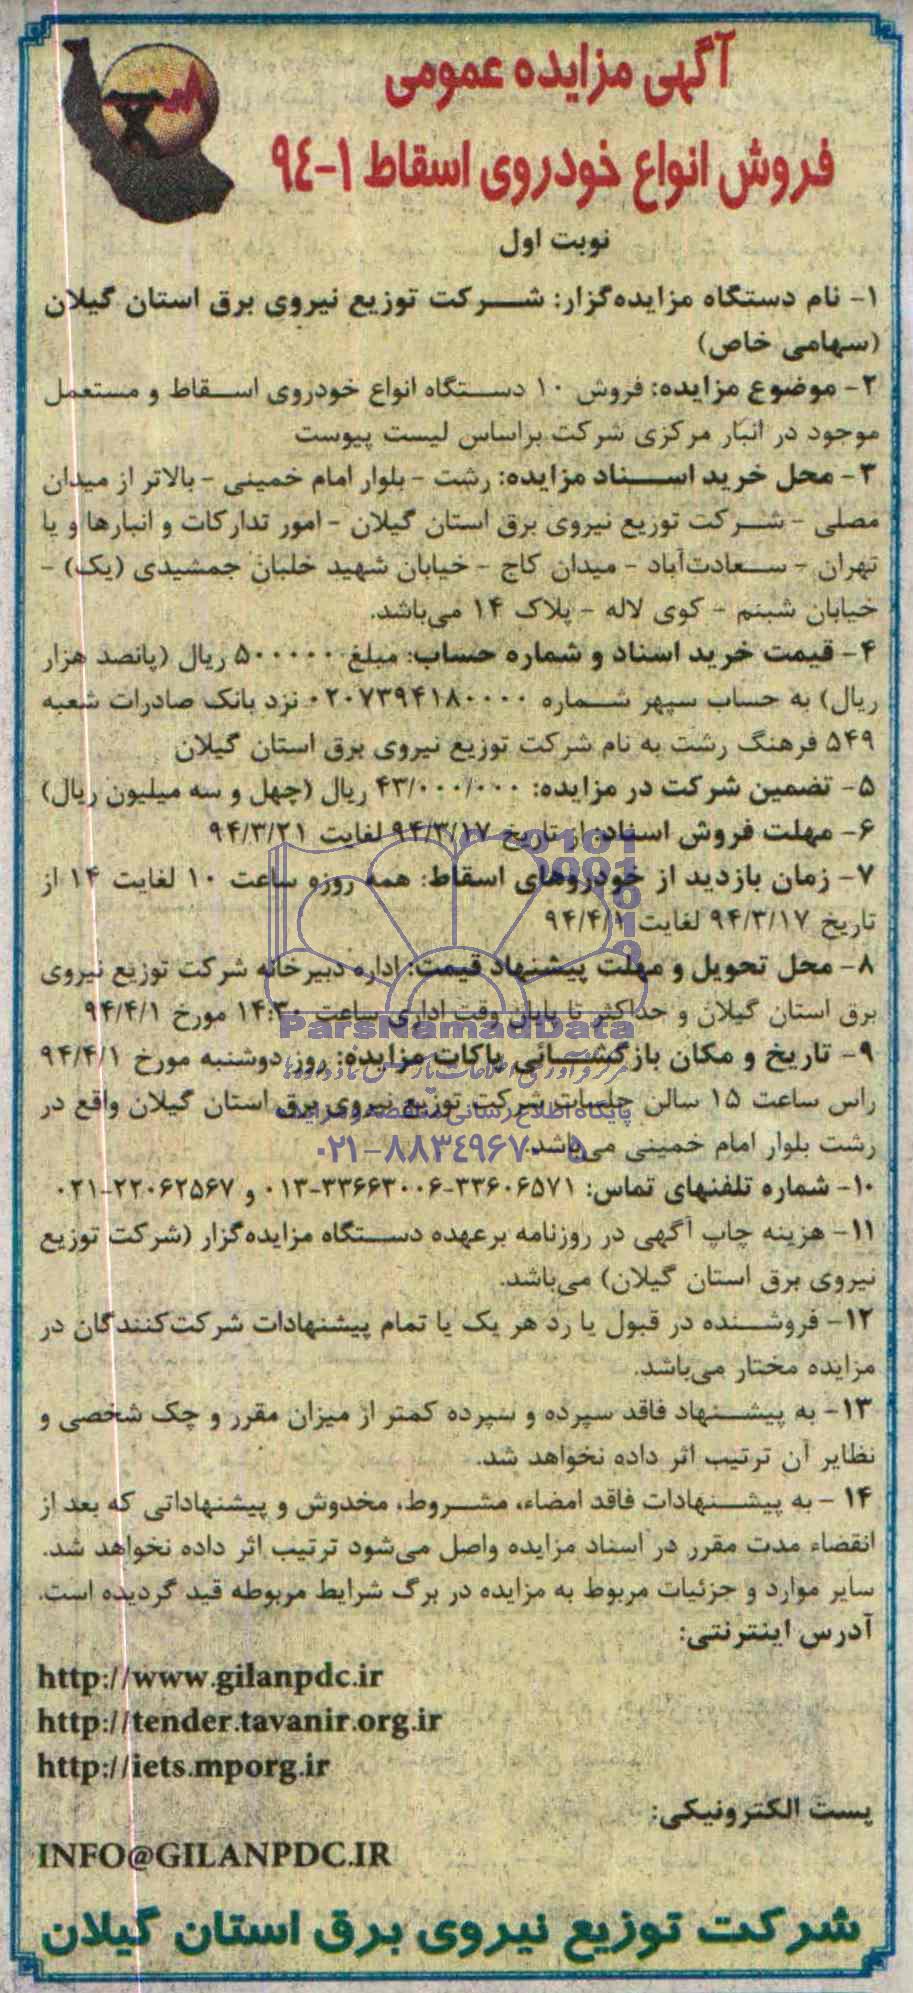 آگهی مزایده عمومی
فروش انواع خودروی اسقاط ۱-۹٤
نوبت اول
۱- نام دستگاه مزایده‌گزار: شرکت توزیع نیروی برق استان گیلان
(سهامی خاص)
۲- موضوع مزایده: فروش ۱۰ دستگاه انواع خودروی اسقاط و مستعمل
موجود در انبار مرکزی شرکت براساس لیست پیوست
۳- محل خرید اسناد مزایده: رشت - بلوار امام خمینی - بالاتر از میدان
مصلی - شرکت توزیع نیروی برق استان گیلان - امور تدارکات و انبارها و یا
تهران - سعادت‌آباد - میدان کاج - خیابان شهید خلبان جمشیدی (یک) -
خیابان شبنم - کوی لاله - پلاک ۱۴ می‌باشد.
۴- قیمت خرید اسناد و شماره حساب: مبلغ ۵۰۰۰۰۰ ریال (پانصد هزار
ریال) به حساب سپهر شماره ۰۲۰۷۳۹۴۱۸۰۰۰۰ نزد بانک صادرات شعبه
۵۴۹ فرهنگ رشت به نام شرکت توزیع نیروی برق استان گیلان
۵- تضمین شرکت در مزایده: ۴۳/۰۰۰/۰۰۰ ریال (چهل و سه میلیون ریال)
۶- مهلت فروش اسناد: از تاریخ ۹۴/۳/۱۷ لغایت ۹۴/۳/۲۱
۷- زمان بازدید از خودروهای اسقاط: همه روزه ساعت ۱۰ لغایت ۱۴ از
تاریخ ۹۴/۳/۱۷ لغایت ۹۴/۴/۱
۸- محل تحویل و مهلت پیشنهاد قیمت: اداره دبیرخانه شرکت توزیع نیروی
برق استان گیلان و حداکثر تا پایان وقت اداری ساعت ۱۴:۳۰ مورخ ۹۴/۴/۱
ParsNamadData
۹- تاریخ و مکان بازگشایی پاکات مزایده: روز دوشنبه مورخ ۹۴/۴/۱
راس ساعت ۱۵ سالن جلسات شرکت توزیع نیروی برق استان گیلان واقع در
رشت بلوار امام خمینی می‌باشد.
۰۲۱-۸۸۳٤۹۶۷۰-۵
۱۰- شماره تلفنهای تماس: ۳۳۶۰۶۵۷۱-۰۱۳-۳۳۶۶۳۰۰۶ و ۲۲۰۶۲۵۶۷-۰۲۱
۱۱- هزینه چاپ آگهی در روزنامه برعهده دستگاه مزایده‌گزار (شرکت توزیع
نیروی برق استان گیلان) می‌باشد.
۱۲- فروشنده در قبول یا رد هر یک یا تمام پیشنهادات شرکت‌کنندگان در
مزایده مختار می‌باشد.
۱۳- به پیشنهاد فاقد سپرده و سپرده کمتر از میزان مقرر و چک شخصی و
نظایر آن ترتیب اثر داده نخواهد شد.
۱۴ - به پیشنهادات فاقد امضاء، مشروط، مخدوش و پیشنهاداتی که بعد از
انقضاء مدت مقرر در اسناد مزایده واصل می‌شود ترتیب اثر داده نخواهد شد.
سایر موارد و جزئیات مربوط به مزایده در برگ شرایط مربوطه قید گردیده است.
آدرس اینترنتی:
http://www.gilanpdc.ir
http://tender.tavanir.org.ir
http://iets.mporg.ir
پست الکترونیکی:
INFO@GILANPDC.IR
شرکت توزیع نیروی برق استان گیلان